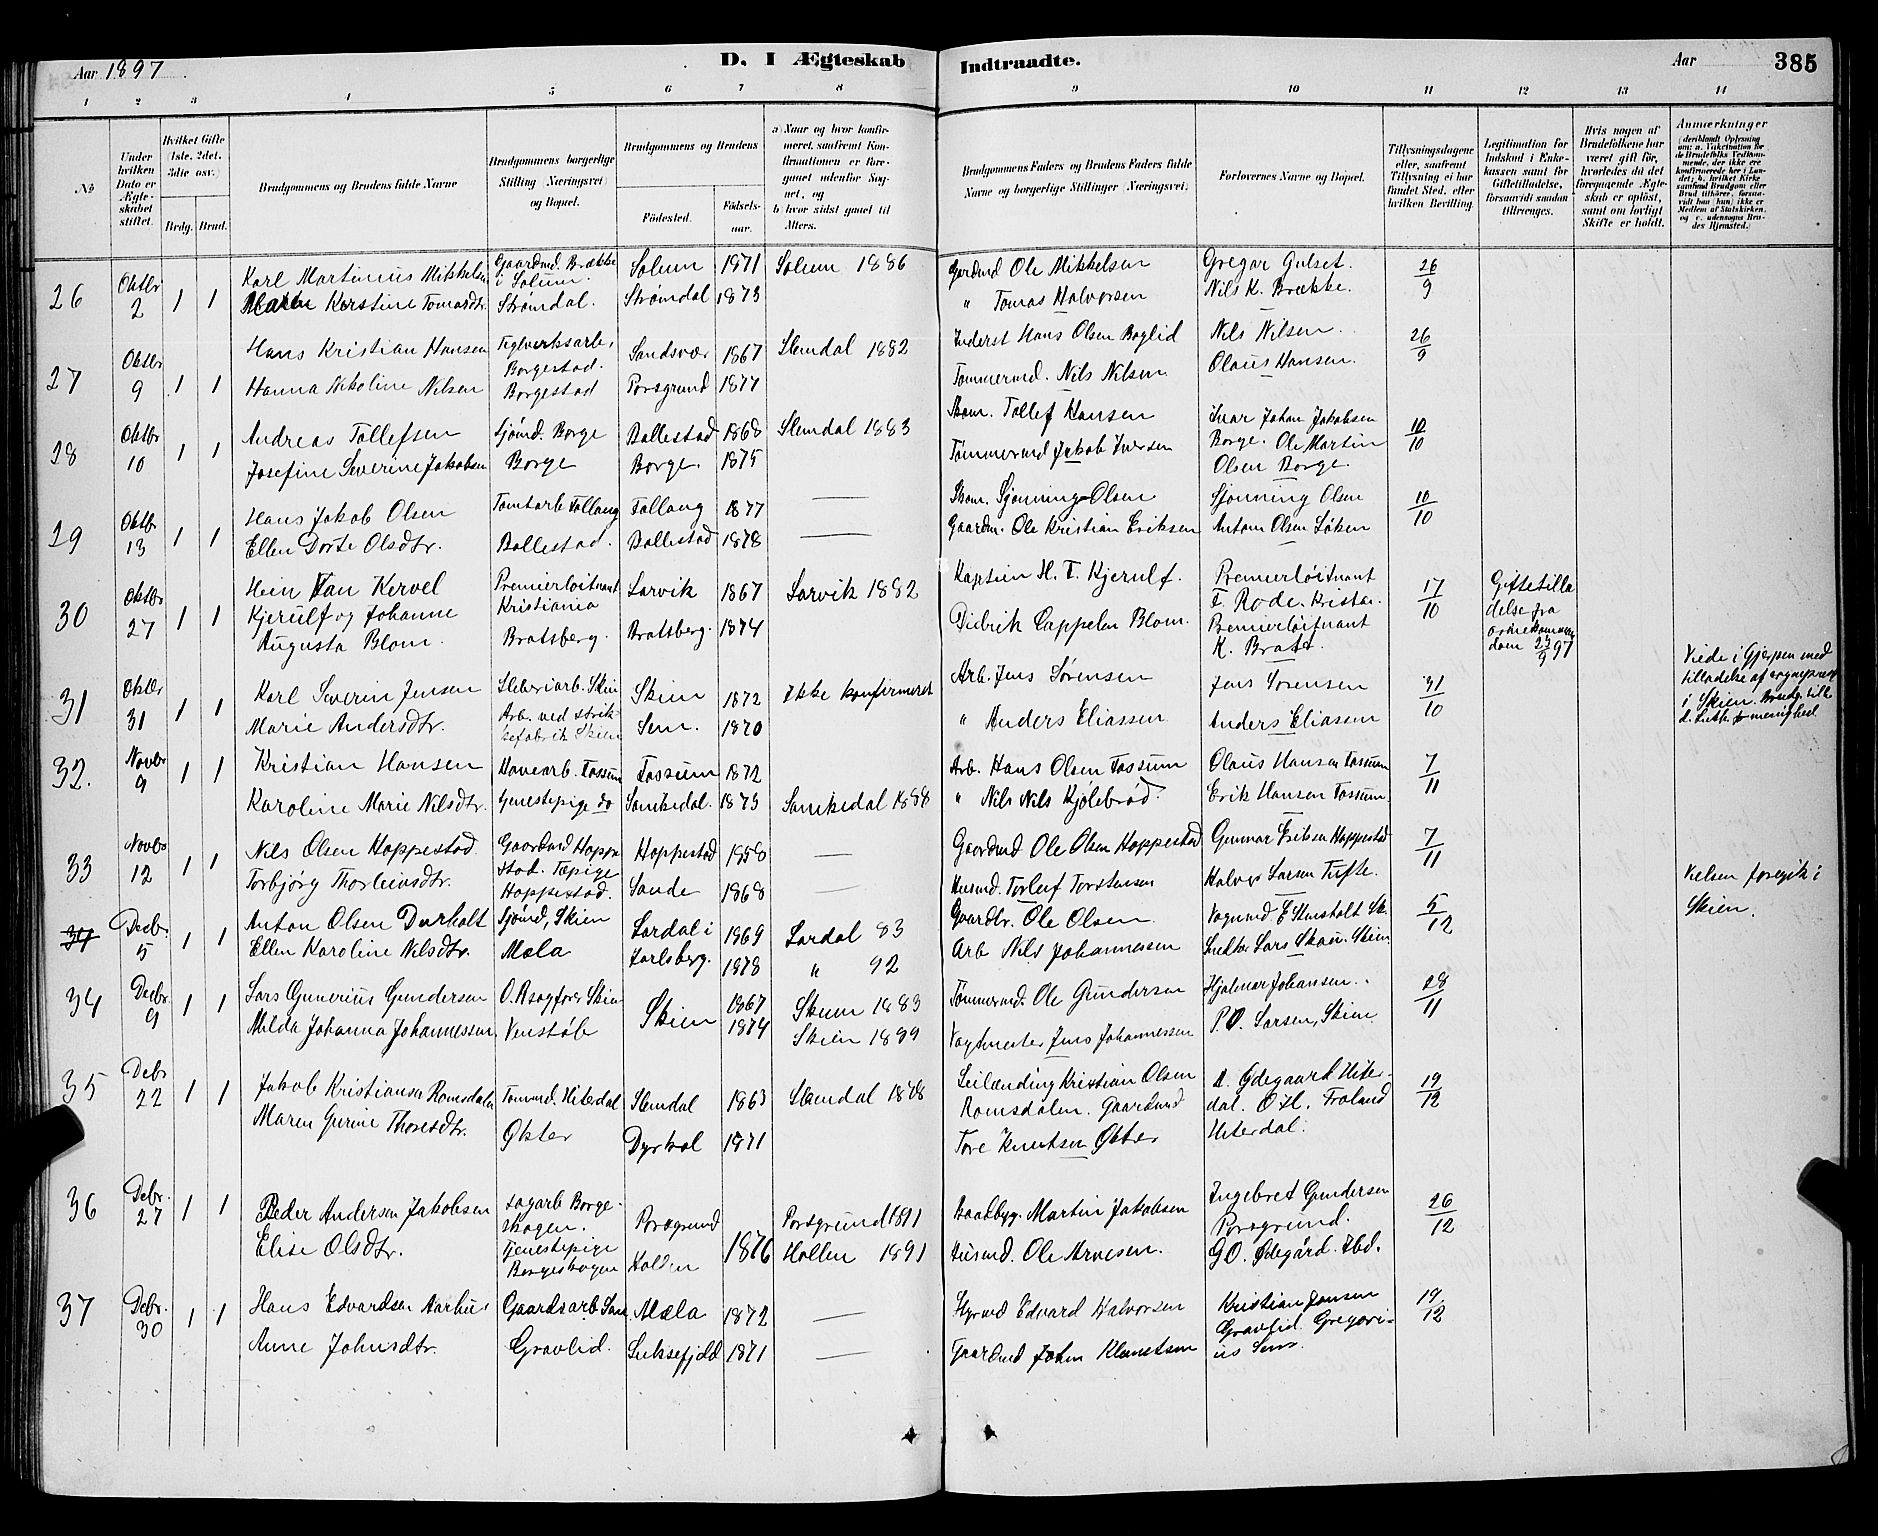 Aar 1897
D. I Ægteskab Indtraadte.
Aar
385
1 2 3 4 5 6 7 8 9 10 11 12 13 14
No
Under hvilken Dato er Ægteskabet stiftet.
Hvilket Gifte (1ste, 2det, 3die osv.)
Brdg. Brud.
Brudgommens og Brudens fulde Navne
Brudgommens borgerlige Stilling (Næringsvei) og Bopæl.
Brudgommens og Brudens
Födested.
Födselsaar.
a) Naar og hvor konfirmeret, saafremt Konfirmationen er foregaaet udenfor Sognet, og
b) hvor sidst gaaet til Alters.
Brudgommens Faders og Brudens Faders fulde Navne og borgerlige Stillinger (Næringsvei).
Forlovernes Navne og Bopæl.
Tillysningsdagene eller, saafremt Tillysning ei har fundet Sted, efter hvilken Bevilling
Legitimation for Indskud i Enkekassen samt for Giftetilladelse, forsaavidt saadan tiltrænges.
Hvis nogen af Brudefolkene har været gift för, hvorledes da det foregaaende Ægteskab er oplöst, samt om lovligt Skifte er holdt.
Anmærkninger
26 Oktbr 2 1 1
Karl Martinius Mikkelsen Gaardmd. Brække i Solum Solum 1871 Solum 1886 Gaardmd Ole Mikkelsen Gregar Gulset. 26/9
Kerstine Tomasdtr. Strömdal. Strömdal 1873 " Tomas Halvorsen Nils K. Brække.
27 Oktbr 9 1 1
Hans Kristian Hansen Teglverksarb. Borgestad. Sandsvær 1867 Slemdal 1882 Inderst Hans Olsen Boglid Nils Nilsen. 26/9
Hanna Nikoline Nilsen Borgestad Porsgrund 1877 Tömmermd. Nils Nilsen Olaus Hansen.
28 Oktbr 10 1 1
Andreas Tollefsen Sjömd. Borge Bollestad 1868 Slemdal 1883 Skom. Tollef Hansen Ivar Johan Jakobsen 10/10
Josefine Severine Jakobsen Borge Borge. 1875 Tömmermd Jakob Iversen Borge. Ole Martin Olsen Borge.
29 Oktbr 13 1 1
Hans Jakob Olsen Tomtarb Follaug Follaug 1877 — Skom. Sjönning Olsen Sjönning Olsen 10/10
Ellen Dorte Olsdtr. Bollestad. Bollestad 1878 — Gaardm. Ole Kristian Eriksen Anton Olsen
30 Oktbr 27 1 1
Hein Fan Kervel Premierlöitnant Larvik 1867 Larvik 1882 Kaptein H. T. Kjerulf. Premierlöitnant 17/10 Giftetilla
Kjerulf og Johanne Kristiania F. Rode. Kristia. delse fra
Augusta Blom. Bratsberg. Bratsberg. 1874 Didrik Cappelen Blom. Premierlöitnant K. Bratt. 97
31 Oktbr 31 1 1
Karl Severin Jensen Sliberiarb. Skien Skien 1872 Ikke konfirmeret Arb. Jens Sörensen Jens Sörensen 31/10
Marie Andersdtr. Arb. ved strikkefabrik Skien Sem. 1870 " Anders Eliassen Anders Eliasen
Viede i Gjerpen med tilladelse af sognepresten i Skien.
32. Novbr 9 1 1
Kristian Hansen Havearb. Fossum Fossum 1872 Arb. Hans Olsen Fossum Olaus Hansen Fossum 7/11
Karoline Marie Nilsdtr. Tjenestepige do Sannikedal. 1873 Sannikedal 1888 " Nils Nils Kjölebröd Erik Hansen Fossum
33 Novbr 12 1 1
Nils Olsen Hoppestad. Gaardmd Hoppestad. Hoppestad 1858 — Gaardmd Ole Olsen Hoppestad Gunnar Eriksen Hoppestad 7/11
Torbjörg Thorleivsdtr. Tøpige Hoppestad. Sande 1868 — Husmd. Torleif Torstensen Halvor Larsen Tufte.
34 Decbr. 5 1 1
Anton Olsen Durholt Sjömd, Skien Lardal i Jarlsberg. 1869 Lardal 83 Gaardbr. Ole Olsen. 5/12
Ellen Karoline Nilsdtr. Mæla 1878 " 92 Arb Nils Johannessen Lars Skau. Skien
Vielsen foregik i Skien.
34 Decbr. 9 1 1
Lars Gunerius Gundersen Skien 1867 Skien 1883 Tömmermd. Ole Gundersen Hjalmar Johansen. 28/11
Milda Johanna Johannessen Venstöb 1874 Skien 1889 Vagtmester Jens Johannessen P. O. Larsen, Skien
35 Debr 22 1 1
Jakob Kristiansen Romsdalen Tommd. Hiterdal Slemdal 1863 Slemdal 1878 Leilænding Kristian Olsen Romsdalen. A. Ödegaard Hiterdal. O. H. Froland Hiterdal. 19/12
Maren Gurine Thoresdtr. Økter Dyrkol 1871 Gaardmd Tore Knutsen Økter
36 Debr. 27 1 1
Peder Andersen Jakobsen Sagarb Borgeskogen. Porsgrund Porsgrund 1891 Baatbyg. Martin Jakobsen Ingebret Gundersen Porsgrund. 26/12
Elise Olsdtr. Tjenestepige Borgeskogen Holden 1876 Hollen 1891 Husmd. Ole Arnesen. G O. Ödegård. Ibd.
37 Debr. 30 1 1
Hans Edvardsen Aarhus Gaardsarb. Mæla 1872 — Styrmd Edvard Halvorsen Kristian Jansen Gravlid. 19/12
Anne Johnsdtr. Gravlid. Luksefjeld 1871 — Gaardmd John Klaussen Gregorius Sem.